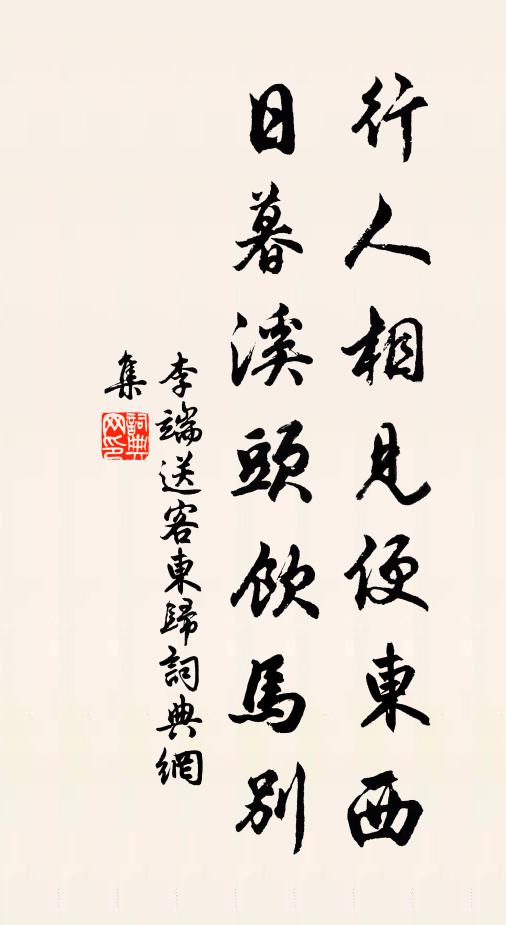 行人相見便東西
日暮溪頭飲馬別
李端送客東歸詞典網
集
詞典
网印